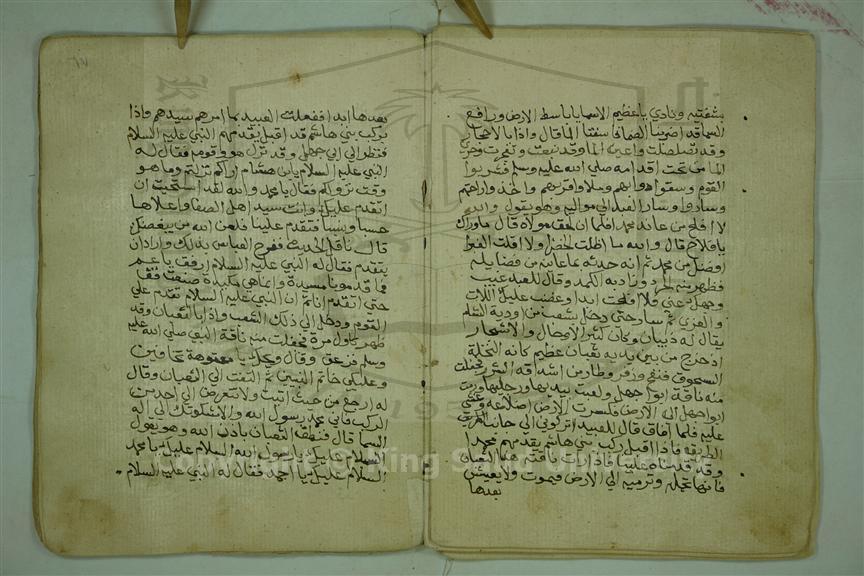 بشفتيه ونادي ياعظيم الاسما ياباسط الارض ورافع
السما قد اضر بنا الضما فاسقنا الما قال واذا بالاحجار
وقد تصلصلت واعين الما وقد نبعت وتفجرت وجري
الما من تحت اقدامه صلي الله عليه وسلم فشربوا
القوم وسقوا دوابهم وملاوا قربهم واخذوا راحتهم
وساروا وسار العبد الي مواليه وهو يقول والله
لا افلح من عاند محمد افلما ان لحق مولاه قال ماوراك
يافلاح قال والله ما اظلت الخضرا ولا اقلت الغبرا
افضل من محمد ثم انه حدثه بما عاين من فضايلم
فظهر بينهم وزاد به الكمد وقال للعبد غيب
وجهك عني فلا افلحت ابدا وغضبت عليك اللات
والعزي ثم سار حتي دخل بشعب من اودية الشام
يقال له ذبيان وكان كثير الاوحال والاشجار
اذ خرج من بين يديه ثعبان عظيم كانه النخلة
السحوق فنفخ وزفر وطار من اشداقه الشرر فجفلت
منه ناقة ابوا جهل ولعبت بيديها ورجليها ورمت
ابوا جهل الي الارض فكسرت الارض اضلاعه وغشي
عليه فلما افاق قال للعبيد اتركوني الي جانب الطريق
الطريق فاذا اقبل ركب بني هاشم يقدمهم محمدا
وقد قدمناه علينا فاذا رات ناقته هذا الثعبان
فانها تجفل وترميه الي الارض فيموت ولا يعيش
بعدها
بعدها ابدا ففعلت العبيد بما امرهم سيدهم واذا
بركب بني هاشم قد اقبل يقدمهم النبي عليه السلام
فنظر الي ابي جهل وقد نزل هو وقومه فقال له
النبي عليه السلام يابن هشام اراكم نزلتم وما هو
وقت نزولكم فقال يا محمد والله لقد استحيت ان
اتقدم عليك وانت سيد اهل الصفا واعلاها
حسبا ونسبا فتقدم علينا فلعن الله من يبغضك
قال ناقل الحديث ففرح العباس بذلك واراد ان
يتقدم فقال له النبي عليه السلام ارفق ياعم
فما قدمونا مسيدة وانما هي مكيدة صنعت فقا
حتي اتقدم انا ثم ان النبي عليه السلام تقدم علي
القوم ودخل الي ذلك الشعب واذا بالثعبان وقد
ظهر كاول مرة فجفلت منه ناقة النبي صلي الله عليه
وسلم فزعق وقال ويحك يا كيف تخافين
وعليكي خاتم النبيين ثم التفت الي الثعبان وقال
له ارجع من حيث اتيت ولا تتعرض الي احد من
الركب فاني محمد رسول الله والا شكوتك الي اله
السما قال فنطق الثعبان باذن الله وهو يقول
السلام عليك يا رسول الله السلام عليك يا محمد
السلام عليك يا احمد فقال له النبي عليه السلام
Copyright © King Saud University